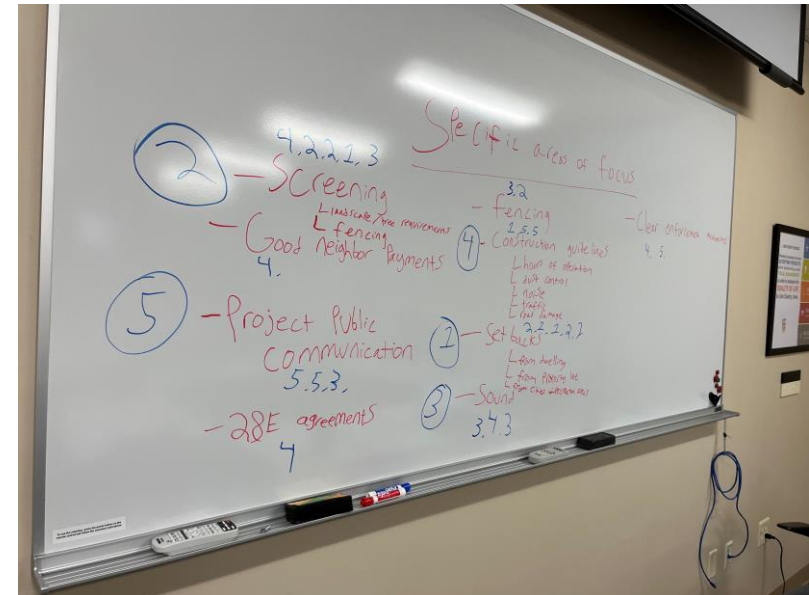 Specific areas of focus
4, 2, 2, 1, 3
② - Screening
└ landscape/tree requirements
└ fencing
- Good neighbor Payments
4,
⑤ - Project Public
communication
5, 5, 3,
- 28E agreements
4
3, 2
- fencing
1, 5, 5
④ - Construction guidelines
└ hours of operation
└ dust control
└ noise
└ traffic
└ road damage
① - Setbacks
└ from dwelling
└ from property line
└ from
③ - Sound
3, 4, 3
- Clear enforcement
4, 5